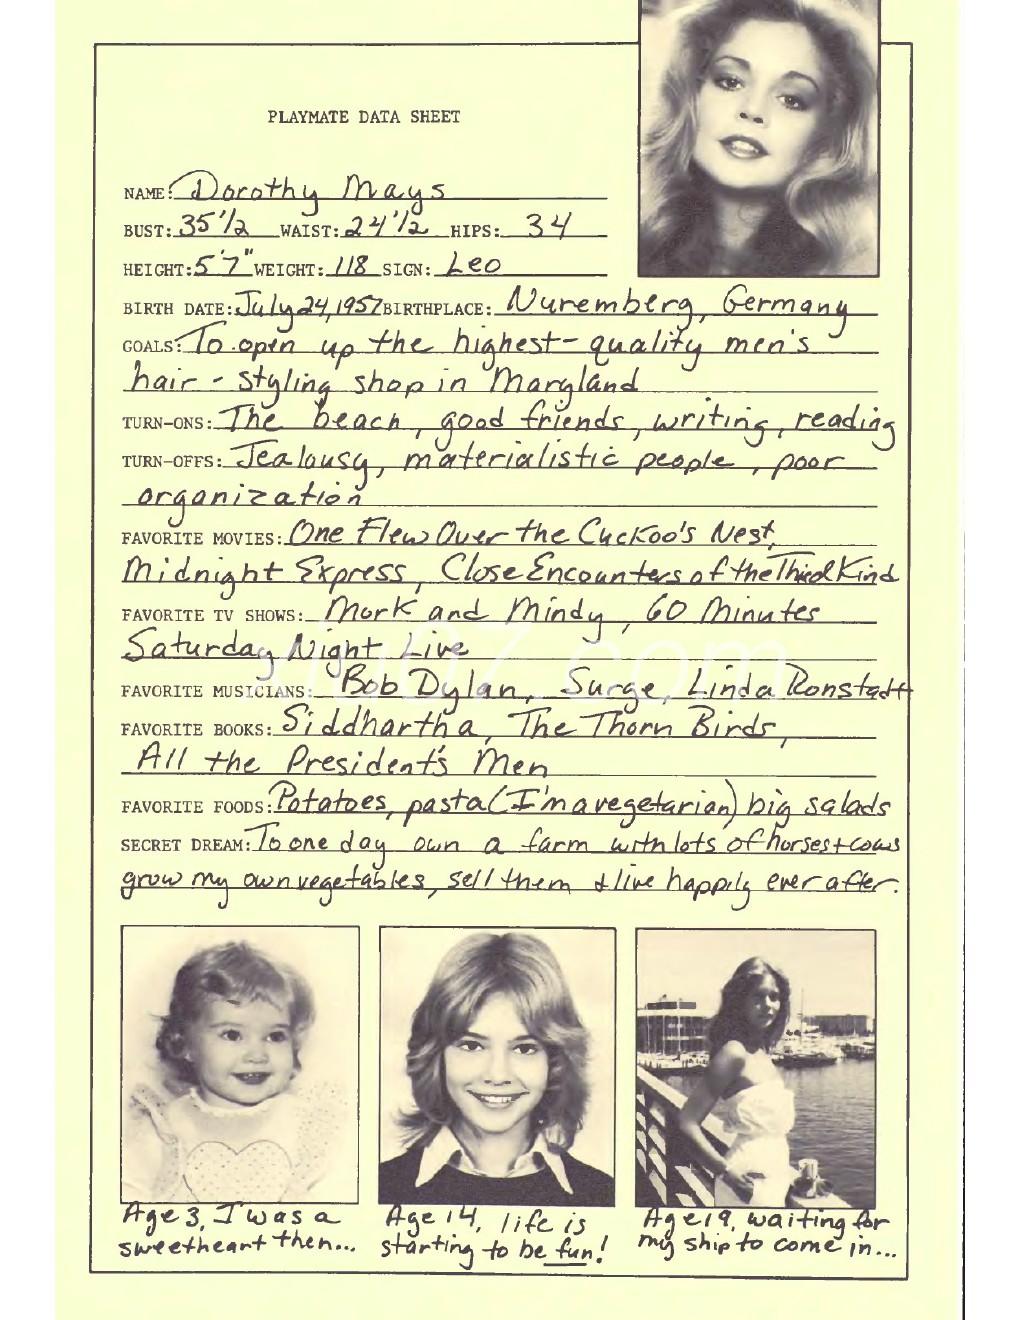 PLAYMATE DATA SHEET
NAME: Dorothy Mays
BUST: 35 1/2 WAIST: 24 1/2 HIPS: 34
HEIGHT: 5'7" WEIGHT: 118 SIGN: Leo
BIRTH DATE: July 24, 1957 BIRTHPLACE: Nuremberg, Germany
GOALS: To open up the highest-quality men's
hair-styling shop in Maryland
TURN-ONS: The beach, good friends, writing, reading
TURN-OFFS: Jealousy, materialistic people, poor
organization
FAVORITE MOVIES: One Flew Over the Cuckoo's Nest,
Midnight Express, Close Encounters of the Third Kind
FAVORITE TV SHOWS: Mork and Mindy, 60 Minutes
Saturday Night Live
FAVORITE MUSICIANS: Bob Dylan, Surge, Linda Ronstadt
FAVORITE BOOKS: Siddhartha, The Thorn Birds,
All the President's Men
FAVORITE FOODS: Potatoes, pasta (I'm a vegetarian) big salads
SECRET DREAM: To one day own a farm with lots of horses + cows
grow my own vegetables, sell them & live happily ever after.
Age 3, I was a
sweetheart then...
Age 14, life is
starting to be fun!
Age 19, waiting for
my ship to come in...